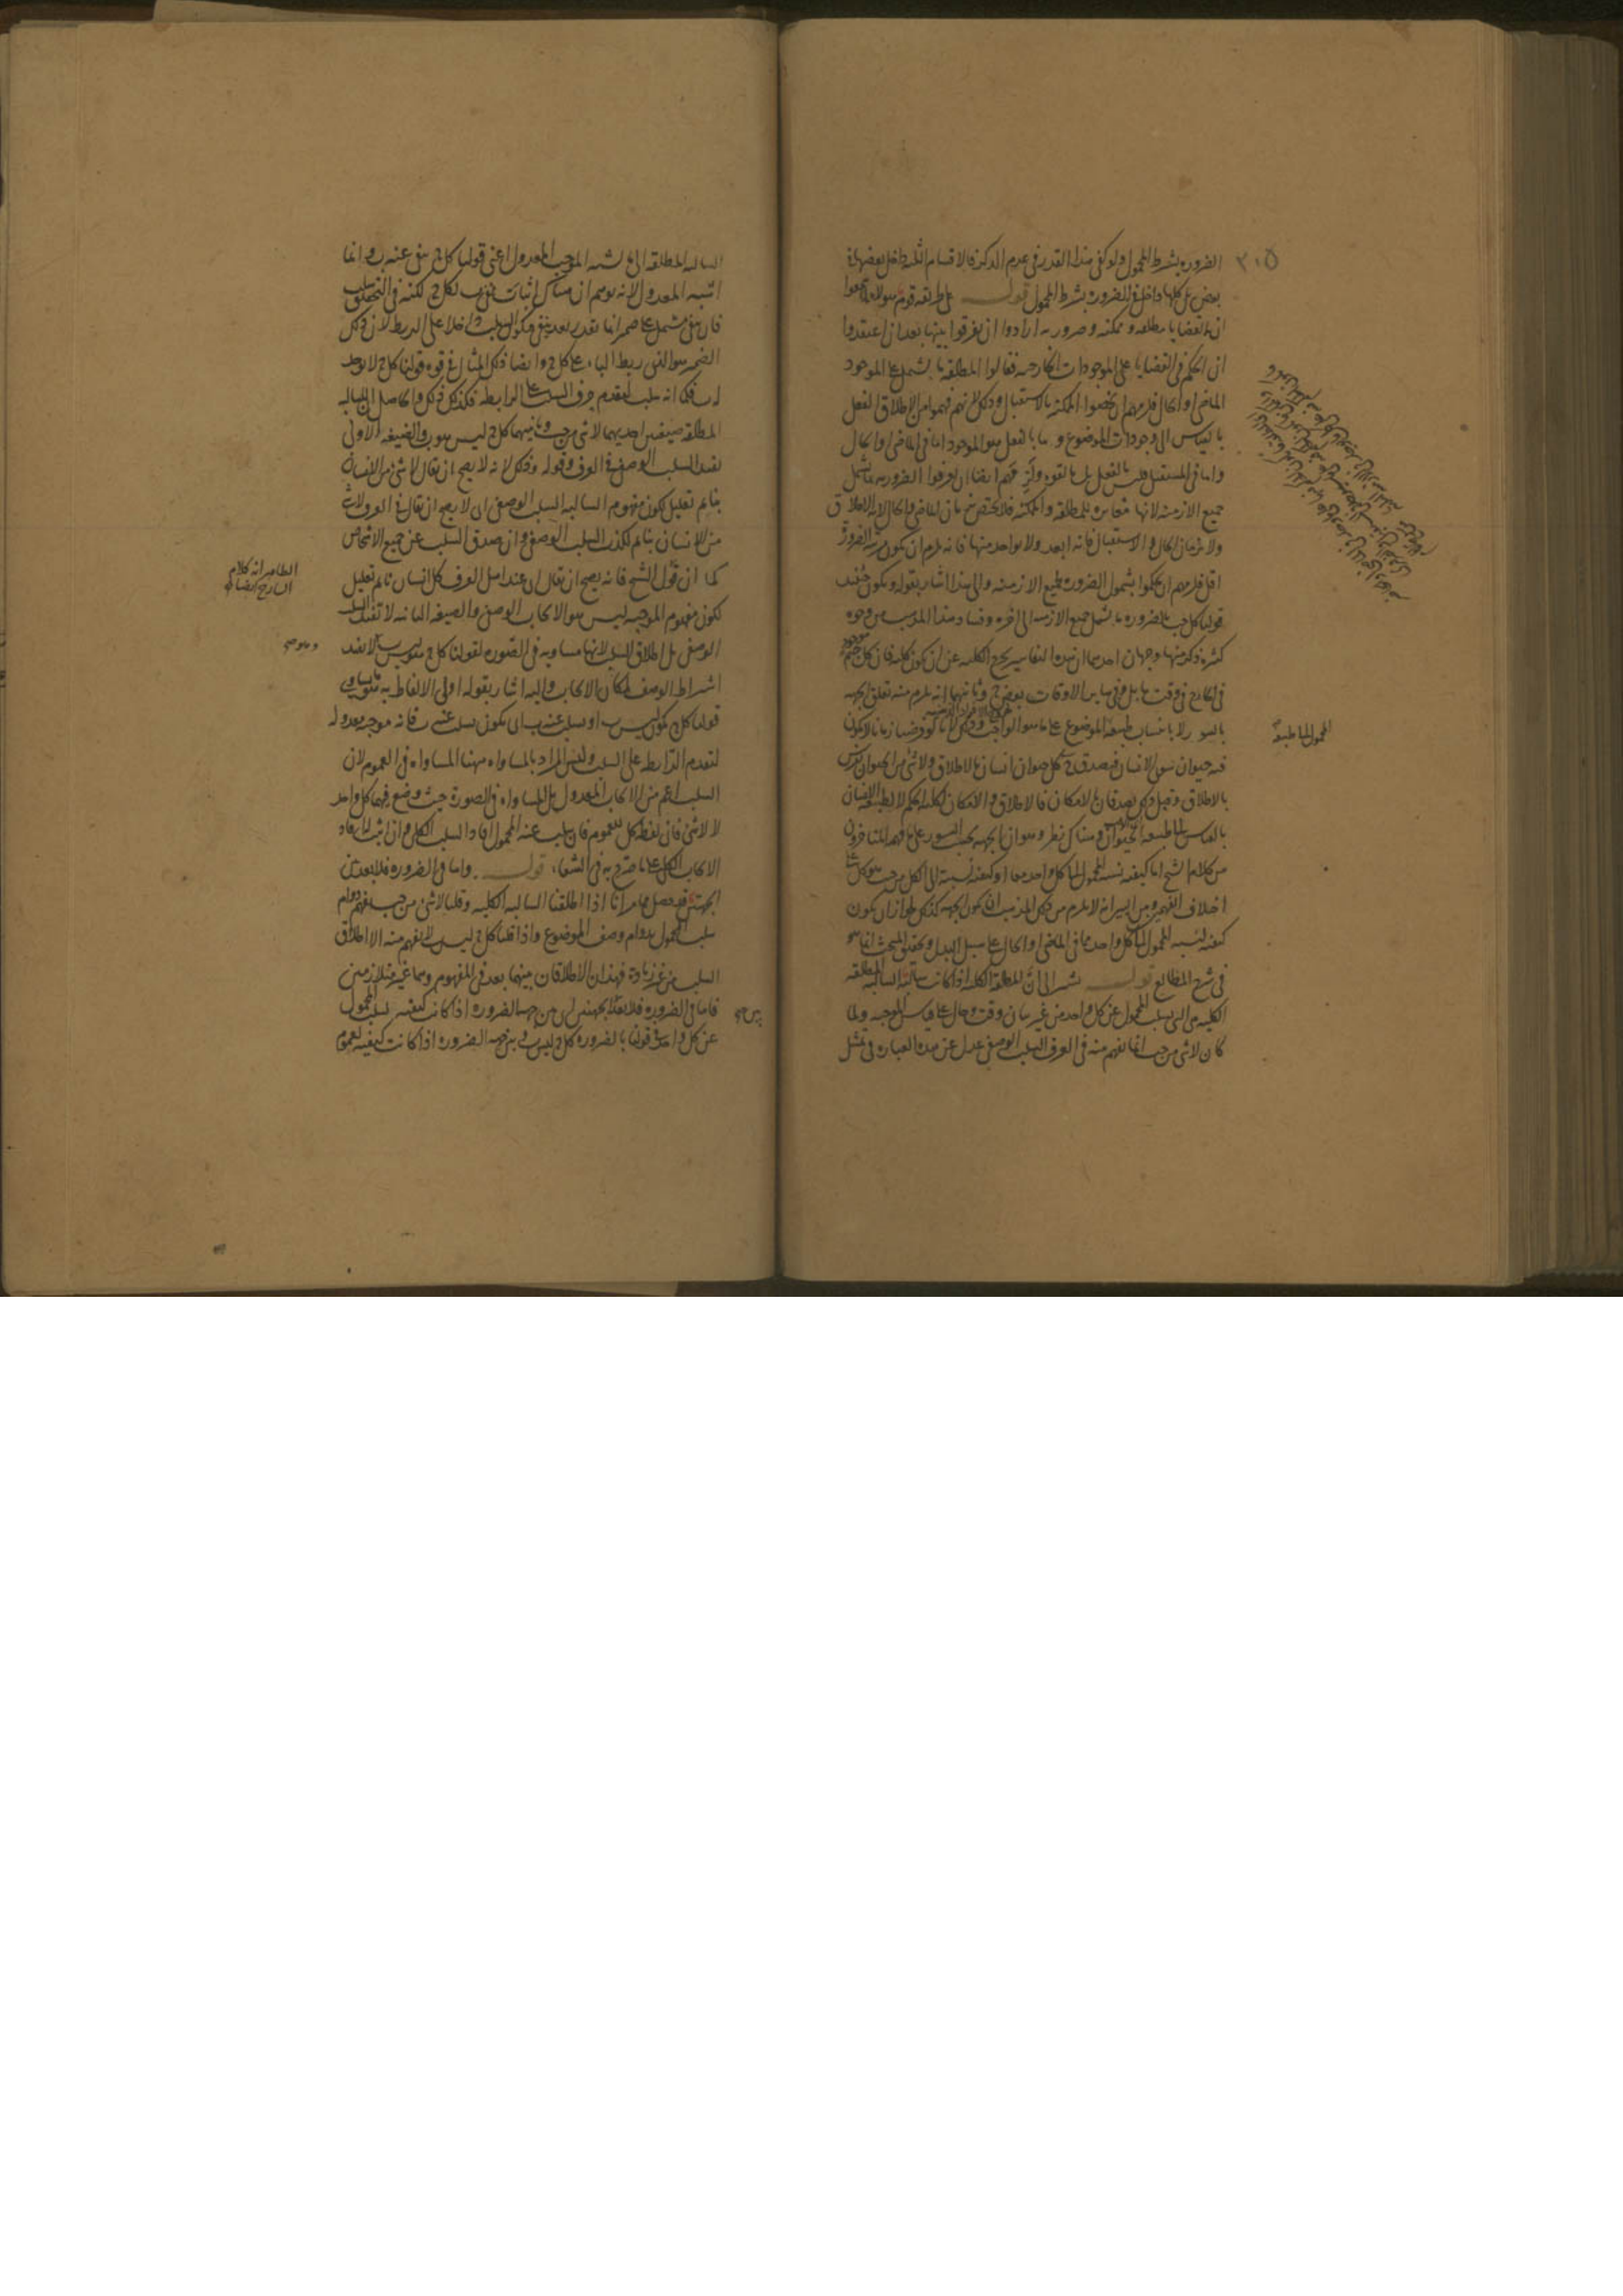 ٣٠٥
الضروره بشرط المحمول ولو كفى هذا القدر فى عدم الذكر فالاقسام الثلثة داخل بعضها فى
بعض بل كلها داخل فى الضروره بشرط المحمول قوله على طريقه قوم هولاء لما سمعوا
ان القضايا مطلقه وممكنه وضروريه ارادوا ان يفرقوا بينها بعد ان اعتقدوا
ان الحكم فى القضايا على الموجودات الخارجيه فقالوا المطلقه ما يشتمل على الموجود
الماضى او الحال فلزمهم ان يخصوا الممكنة بالاستقبال وذلك لانهم فهموا من الاطلاق الفعل
بالقياس الى وجودات الموضوع وما بالفعل هو الموجود اما فى الماضى او الحال
واما فى المستقبل فليس بالفعل بل بالقوه ولزمهم ايضا ان يعرفوا الضروريه بما يشمل
جميع الازمنه لانها مغايره للمطلقه والممكنه فلا يختص بزمان الماضى والحال لانه الاطلاق
ولا بزمان الحال والاستقبال فانه ابعد ولا بواحد منها فانه يلزم ان يكون مرتبه الضرورة
اقل فلزمهم ان يحكموا بشمول الضروره لجميع الازمنه والى هذا اشار بقوله ويكون حينئذ
قولنا كل ج ب بالضروره ما يشمل جميع الازمنه الى اخره وفساد هذا المذهب من وجوه
كثيره ذكر منها وجهان احدهما ان هذه التفاسير يخرج الكليه عن ان يكون كليه فان كل ج موجود
فى الخارج فى وقت ما بل وفى ساير الاوقات بعض ج وثانيهما انه يلزم منه تعلق الجهه
بالسور لا بانتساب طبيعه الموضوع على ما هو الواجب وذلك لانا لو فرضنا زمانا لا يكون
فيه حيوان سوى الانسان فيصدق ح كل حيوان انسان بالاطلاق ولا شى من الحيوان بفرس
بالاطلاق وقبل ذلك يصدقان بالامكان فالاطلاق والامكان لكلية الحكم لا لطبيعه الانسان
بالقياس الى طبيعه الحيوان وهناك نظر وهو ان الجهه بحسب السور على ما فهمه المتاخرون
من كلام الشيخ اما كيفيه نسبه المحمول الى كل واحد معا او كيفيه نسبته الى الكل من حيث هو كل على
اختلاف التفسيرين ايسر انه لا يلزم من ذلك المذهب ان يكون الجهه كذلك لجواز ان يكون
كيفيه لنسبه المحمول الى كل واحد مما فى الماضى او الحال على سبيل البدل وتحقيق المبحث انما هو
فى شرح المطالع قوله يشير الى ان المطلقه الكليه اذا كانت سالبه السالبه المطلقه
الكليه هى التى يسلب المحمول عن كل واحد من غير بيان وقت وحال على قياس الموجبه ولما
كان لا شى من ج ب انما يفهم منه فى العرف السلب الوصفى عدل عن هذه العباره فى تمثيل
المحمول الى طبيعة
السالبه المطلقه الى ما يشبه الموجب المعدول اعنى قولنا كل ج ينفى عنه ب وانما
اشبه المعدول لانه يوهم ان هناك اثبات نفى ب لكل ج لكنه فى التحقيق سلب
فان ينفى مشتمل على ضمير انما يقدر بعد ينفى فيكون السلب داخلا على الربط لان ذلك
الضمير هو الذى يربط الباء على كل ج وايضا ذلك المثال فى قوه قولنا كل ج لا يوجد
له ب فكما انه سلب لتقدم حرف السلب على الرابطه فكذلك ذلك والحاصل ان للسالبه
المطلقه صيغتين احديهما لا شى من ج ب وثانيهما كل ج ليس هو ب والصيغه الاولى
يفيد السلب الوصفى فى العرف وقوله وذلك لانه لا يصح ان يقال لا شى من الانسان
بنايم تعليل لكون مفهوم السالبه السلب الوصفى اى لا يصح ان يقال فى العرف لا شى
من الانسان بنايم لكذب السلب الوصفى وان صدق السلب عن جميع الاشخاص
كما ان قول الشيخ فانه يصح ان يقال اى عند اهل العرف كل انسان نايم تعليل
لكون مفهوم الموجبه ليس هو الايجاب الوصفى والصيغه الثانيه لا تفيد السلب
الوصفى بل اطلاق السلب لانها مساويه فى الصوره لقولنا كل ج هو ليس ب لا يفيد
اشتراط الوصف لمكان الايجاب واليه اشار بقوله اولى الالفاظ به هو ما يساوى
قولنا كل ج يكون ليس ب او يسلب عنه ب اى يكون يسلب عنه ب فانه موجبه معدوله
لتقدم الرابطه على السلب وليس المراد بالمساواه ههنا المساواه فى العموم لان
السلب اعم من الايجاب المعدول بل المساواه فى الصورة حيث وضع فيهما كل واحد
لا لا شى فان لفظ كل للعموم فان سلب عنه المحمول افاد السلب الكلى وان اثبت له افاد
الايجاب الكلى على ما صرح به فى الشفاء قوله واما فى الضروره فلا بعد بين
الجهتين قد حصل مما مر انا اذا اطلقنا السالبه الكليه وقلنا لا شى من ج ب يفهم دوام
سلب المحمول بدوام وصف الموضوع واذا قلنا كل ج ليس ب لا يفهم منه الا اطلاق
السلب من غير زيادة فهذان الاطلاقان بينهما بعد فى المفهوم وهما غير متلازمين
فاما فى الضروره فلا بعد بين الجهتين اى بين جهه الضروره اذا كانت كيفيه لسلب المحمول
عن كل واحد فى قولنا بالضروره كل ج ليس ب وبين جهه الضروره اذا كانت كيفيه لعموم
الظاهر انه كلام
الشارح ايضا